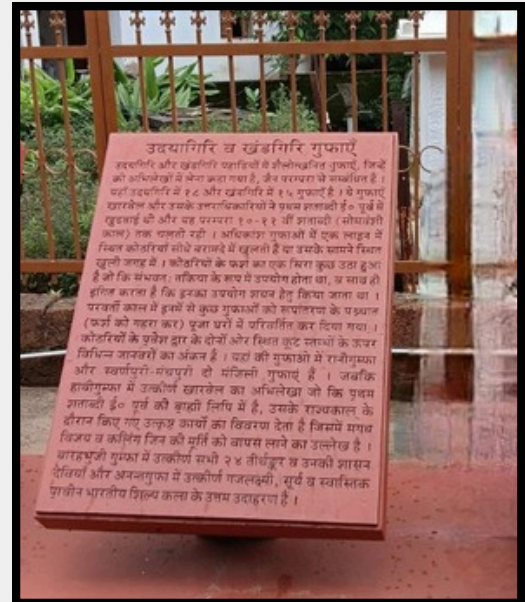 उदयागिरि व खंडगिरि गुफाएँ
उदयगिरि और खंडगिरि पहाड़ियों में शैलोत्खनित गुफाएं, जिन्हें
को अभिलेखों में लेना कहा गया है, जैन परम्परा से सम्बंधित है ।
यहाँ उदयगिरि में १८ और खंडगिरि में १५ गुफाएँ है । ये गुफाएं
खारवेल और उसके उत्तराधिकारियों ने प्रथम शताब्दी ई० पूर्व में
खुदवाई थी और यह परम्परा १०-११ वीं शताब्दी (सोमवंशी
काल) तक चलती रही । अधिकांश गुफाओं में एक लाइन में
स्थित कोठरियाँ सीधे बरामदे में खुलती हैं या उसके सामने स्थित
खुली जगह में । कोठरियों के फर्श का एक सिरा कुछ उठा हुआ
है जो कि संभवत: तकिया के रूप में उपयोग होता था, व साथ ही
इंगित करता है कि इनका उपयोग शयन हेतु किया जाता था ।
परवर्ती काल में इनमें से कुछ गुफाओं को रूपांतरण के पश्चात
(फर्श को गहरा कर) पूजा घरों में परिवर्तित कर दिया गया ।
कोठरियों के प्रवेश द्वार के दोनों ओर स्थित कूट स्तम्भों के ऊपर
विभिन्न जानवरों का अंकन है । यहां की गुफाओं में रानीगुम्फा
और स्वर्णपुरी-मंचपुरी दो मंजिली गुफाएं है । जबकि
हाथीगुम्फा में उत्कीर्ण खारवेल का अभिलेख जो कि प्रथम
शताब्दी ई० पूर्व की ब्राह्मी लिपि में है, उसके राज्यकाल के
दौरान किए गए उत्कृष्ट कार्यों का विवरण देता है जिसमें मगध
विजय व कलिंग जिन की मूर्ति को वापस लाने का उल्लेख है ।
बारहभुजी गुम्फा में उत्कीर्ण सभी २४ तीर्थंङ्कर व उनकी शासन
देवियाँ और अनन्तगुफा में उत्कीर्ण गजलक्ष्मी, सूर्य व स्वास्तिक
प्राचीन भारतीय शिल्प कला के उत्तम उदाहरण है ।